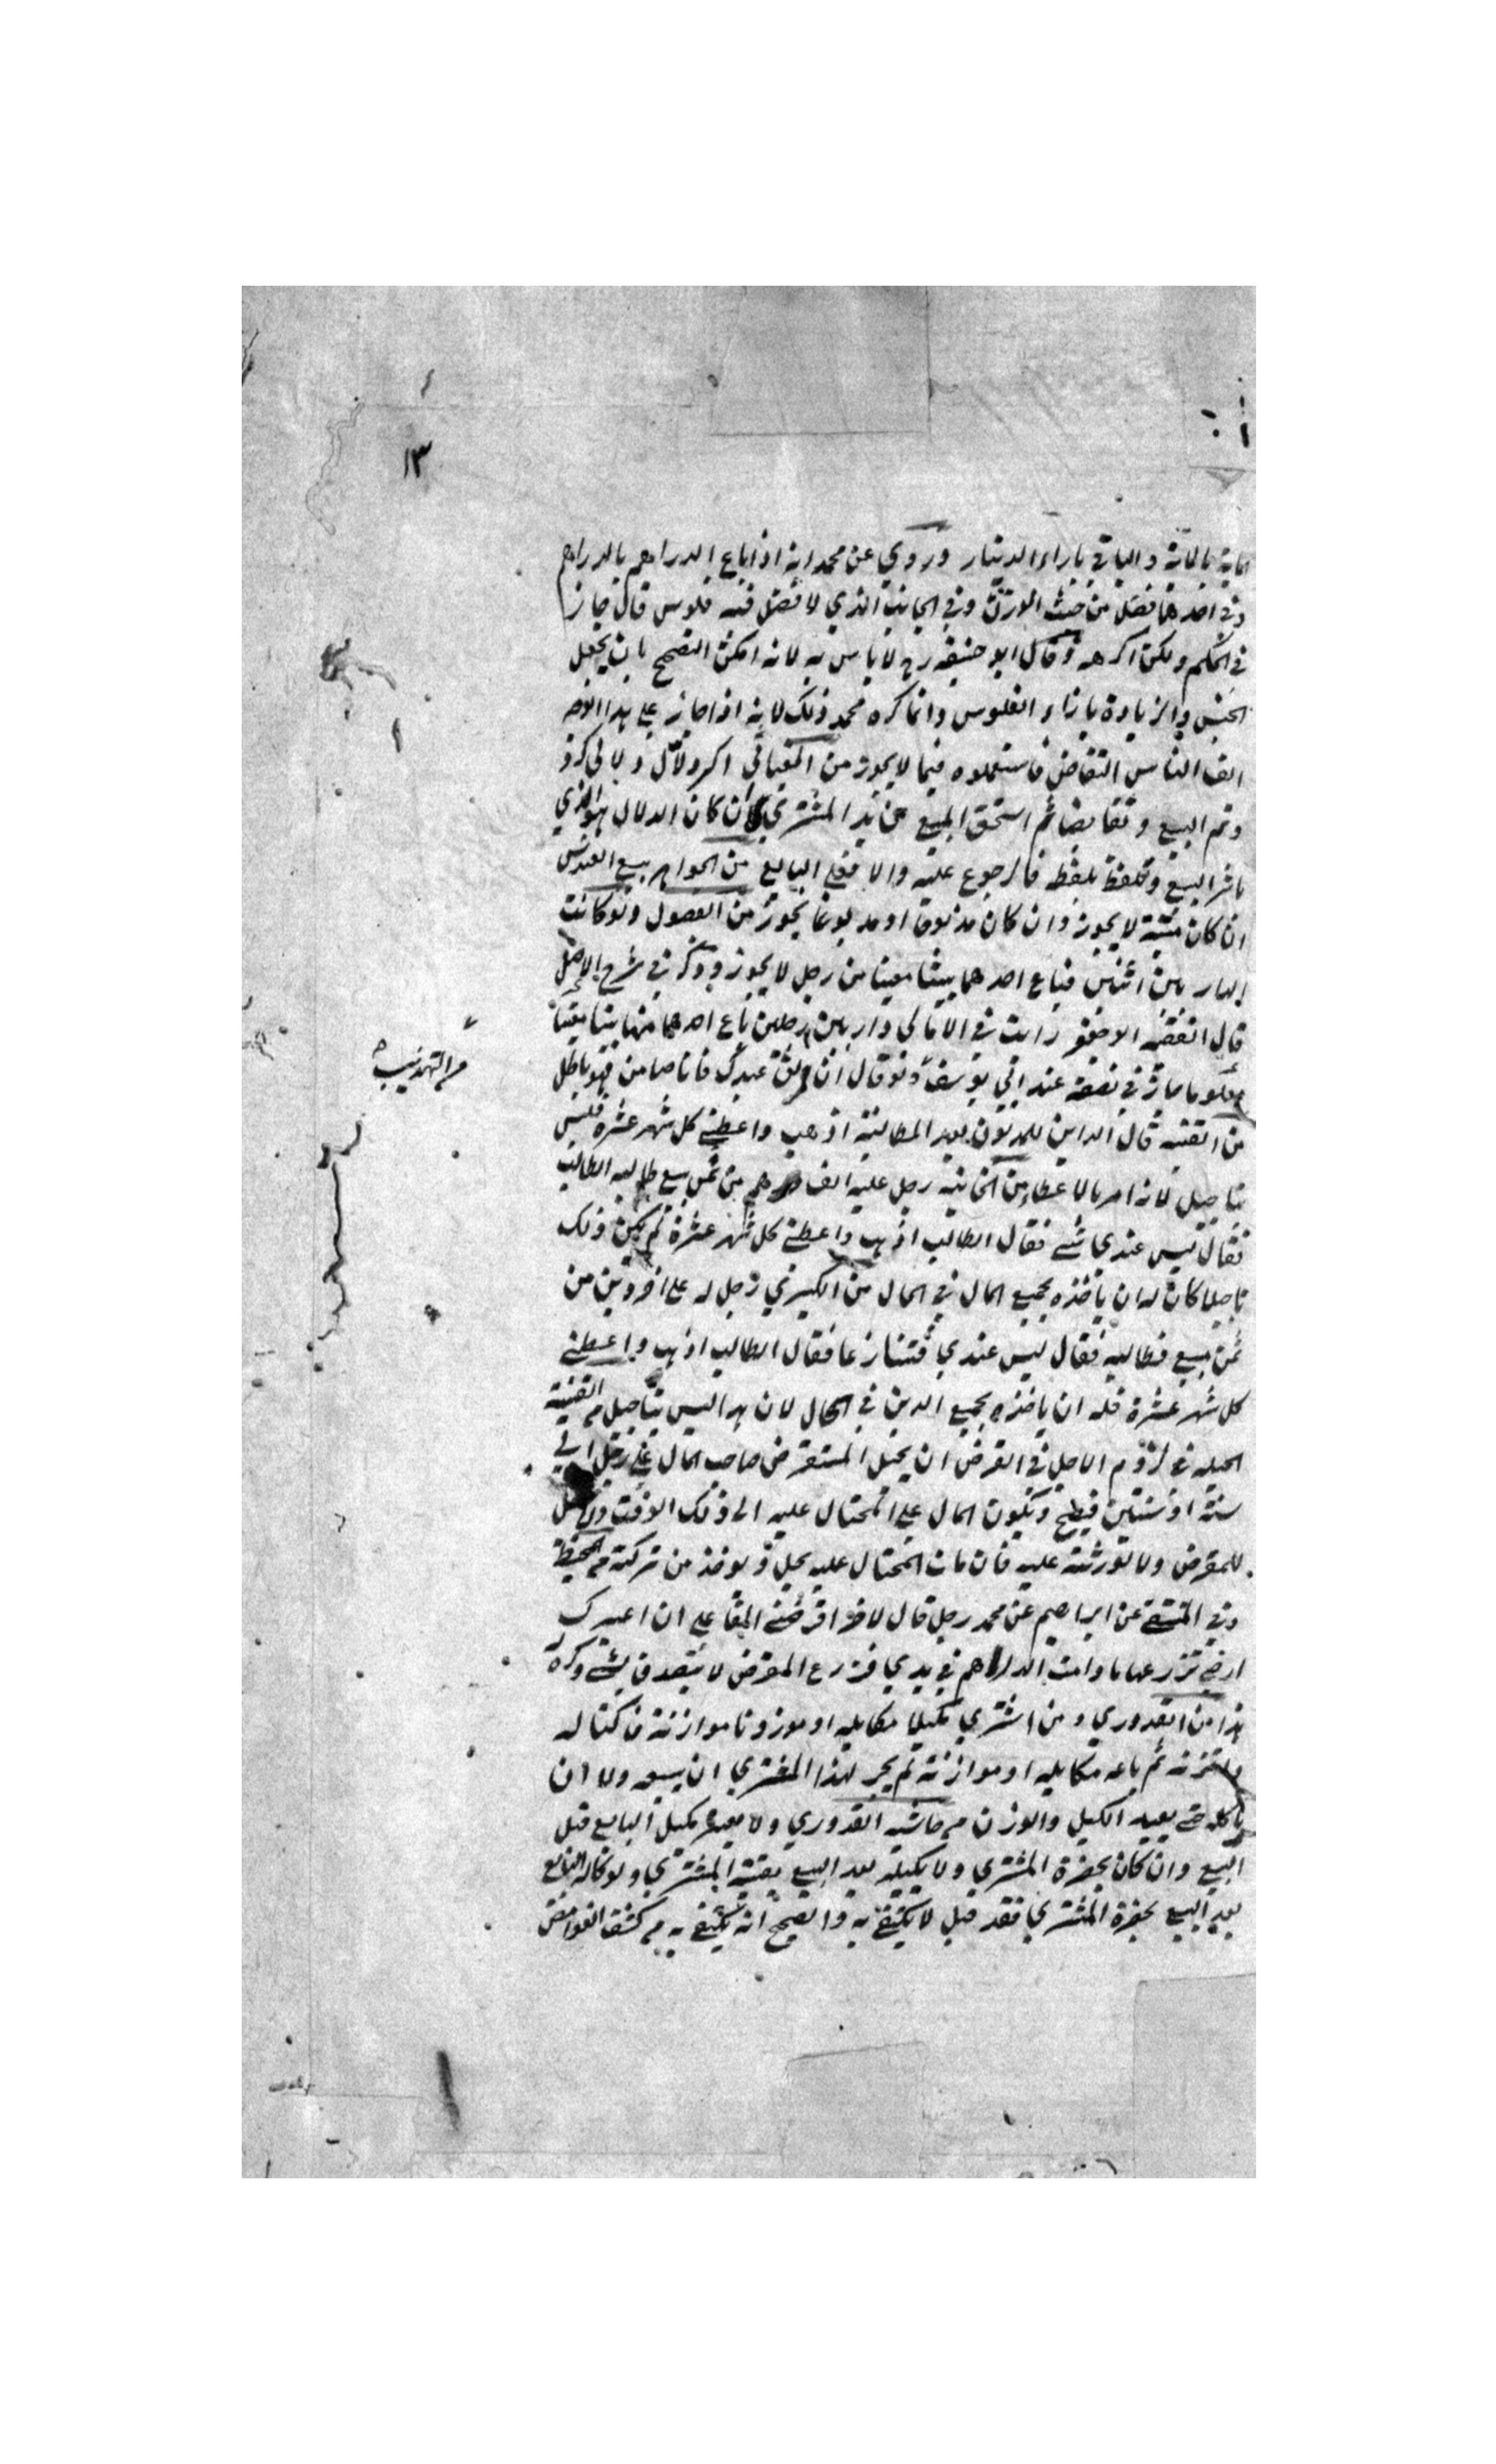 ١٣
المائة بالمائة والباقي بازاء الدينار وروي عن محمد انه اذا باع الدراهم بالدراهم
وفي احدهما فضل من حيث الوزن وفي الجانب الذي لا فضل فيه فلوس قال جاز
في الحكم ولكن اكرهه وقال ابو حنيفه رح لا باس به لانه امكن التصحيح بان يجعل
الجنس والزيادة بازاء الفلوس وانما كره محمد ذلك لانه اذا جاز على هذا الوجه
الف الناس التفاضل فاستعملوه فيما لا يجوز من
وتم البيع وتقابضا ثم استحق المبيع من يد المشتري ان كان الدلال هو الذي
باشر البيع وتلفظ بلفظه فالرجوع عليه والا فعلى البايع من الجواهر بيع
ان كان ميتة لا يجوز وان كان مذبوحا او مدبوغا يجوز من الفصول ولو كانت
الدار بين اثنين فباع احدهما بيتا معينا من رجل لا يجوز وذكر في شرح
قال الفقيه ابو جعفر رايت في الامالي دار بين رجلين باع احدهما منها بيتا معينا
معلوما جاز في نصفه عند ابي يوسف ولو قال ان عبدك فانا ضامن فهو باطل
من التهذيب
من القنيه قال الداين للمديون بعد المطالبة اذهب واعطني كل شهر عشرة فليس
بتاجيل لانه امر بالاعطاء من الخانية رجل عليه الف درهم من ثمن بيع طالبه الطالب
فقال ليس عندي شئ فقال الطالب اذهب واعطني كل شهر عشرة لم يكن ذلك
تاجيلا كان له ان ياخذه بجميع المال في الحال من الكبري رجل له على اخر دين من
ثمن مبيع فطالبه فقال ليس عندي فتنازعا فقال الطالب اذهب واعطني
كل شهر عشرة فله ان ياخذه بجميع الدين في الحال لان هذا ليس بتاجيل من القنية
الحيلة في لزوم الاجل في القرض ان يحيل المستقرض صاحب المال على رجل الي
سنة او سنتين فيصح ويكون المال على المحتال عليه الى ذلك الوقت
للمقرض ولا لورثته عليه فان مات المحتال عليه يحل ويوخذ من تركته من المحيط
وفي المنتقى عن ابراهيم عن محمد رجل قال لاخر اقرضني الفا على ان اعيرك
ارضي تزرعها ما دامت الدراهم في يدي فزرع المقرض لا يتصدق بشئ وكره
هذا من القدوري ومن اشتري مكيلا مكايلة او موزونا موازنة فاكتاله
واتزنه ثم باعه مكايلة او موازنة لم يجز لهذا المشتري ان يبيعه ولا ان
ياكله حتى يعيد الكيل والوزن من حاشيه القدوري ولا معتبر بكيل البايع قبل
البيع وان كان بحضرة المشتري ولا بكيله بعد البيع بغيبة المشتري ولو كاله البايع
بعد البيع بحضرة المشتري فقد قيل لا يكتفى به والصحيح انه يكتفى به من كشف الغوامض